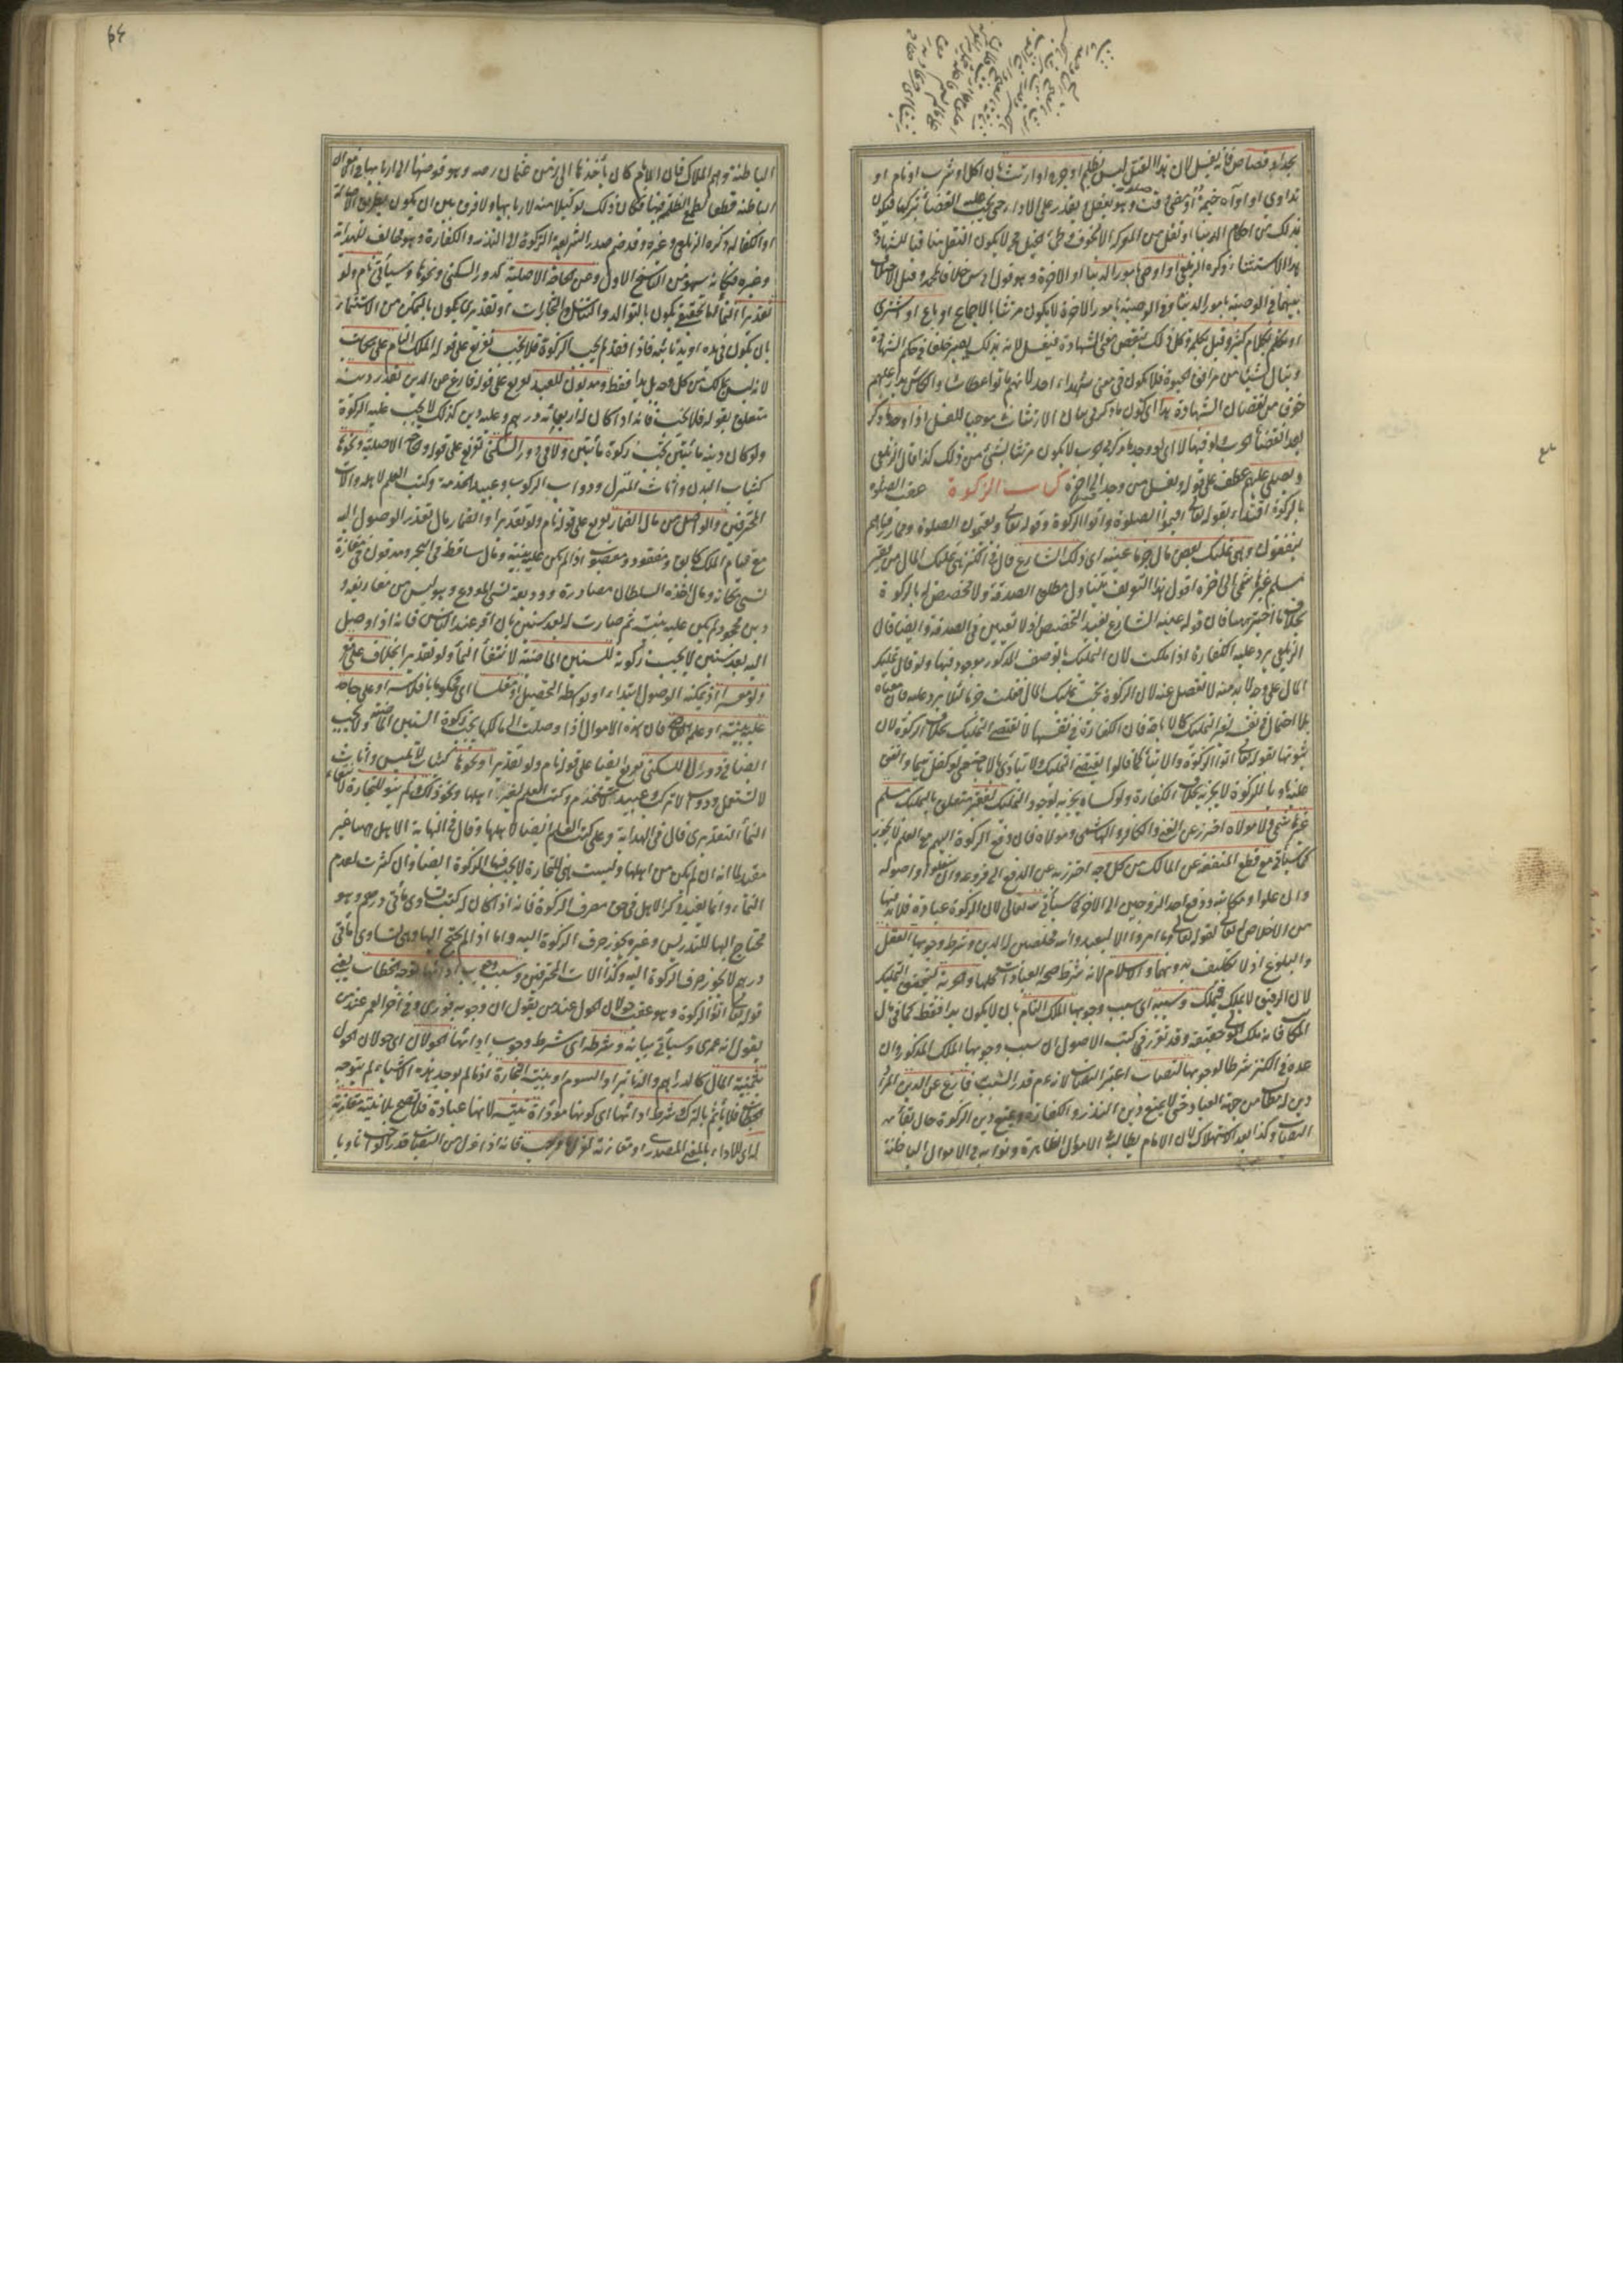 بحد او قصاص فانه يغسل لان هذا القتل ليس بظلم او جرح وارتث بان اكل او شرب او نام او
تداوى او اواه خيمة او مضى وقت صلوة وهو يعقل ويقدر على الاداء حتى يجب عليه القضاء بتركها فيكون
بذلك من احكام الدنيا او نقل من المعركة الا لخوف وطئ الخيل
هذا الاستثناء ذكره الزيلعي او اوصى بامور الدنيا او الاخرة وهو قول ابي يوسف خلافا لمحمد وقيل الاختلاف
بينهما في الوصية بامور الدنيا وفي الوصية بامور الاخرة لا يكون مرتثا بالاجماع او باع او اشترى
او تكلم بكلام كثير وقيل بكلمة وكل ذلك ينقص معنى الشهادة فيغسل لانه بذلك يصير خلقا في حكم الشهادة
وينال شيئا من مرافق الحيوة فلا يكون في معنى شهداء احد لانهم ماتوا عطاشا والكاس يدار عليهم
خوفا من نقصان الشهادة هذا اي كون ما ذكر في بيان الارتثاث موجبا للغسل اذا وجد ما ذكر
بعد انقضاء الحرب ولو فيها لا اي لو وجد ما ذكر في الحرب لا يكون مرتثا بشئ من ذلك كذا قال الزيلعي
ويصلى عليهم عطف على قوله ويغسل من وجد الى اخره كتاب الزكوة عقب الصلوة
بالزكوة اقتداء بقوله تعالى اقيموا الصلوة واتوا الزكوة وقوله تعالى ويقيمون الصلوة ومما رزقناهم
ينفقون وهي تمليك بعض مال جزما عينه اي ذلك الشارع قال في الكنز هي تمليك المال من فقير
مسلم غير هاشمي الى اخره اقول هذا التعريف يتناول مطلق الصدقة ولا تخصيص له بالزكوة
بخلاف ما اختير ههنا فان قوله عينه الشارع يفيد التخصيص اذ لا تعيين في الصدقة وايضا قال
الزيلعي يرد عليه الكفارة اذا ملكت لان التمليك بالوصف المذكور موجود فيها ولو قال تمليك
المال على وجه لا بد منه لانفصل عنه لان الزكوة يجب تمليك المال فقلت جزما لئلا يرد عليه فان معناه
بلا احتمال في نفسه لغير التمليك كالاباحة فان الكفارة في نفسها لا تقتضي التمليك بخلاف الزكوة لان
ثبوتها بقوله تعالى اتوا الزكوة والايتاء كما قالوا يقتضي التمليك ولا يتادى بالاباحة حتى لو كفل يتيما وانفق
عليه ناويا للزكوة لا يجزيه بخلاف الكفارة ولو كساه يجزيه لوجود التمليك لفقير متعلق بالتمليك مسلم
غير هاشمي ولا مولاه احترز عن الغني والكافر والهاشمي ومولاه فان دفع الزكوة اليهم مع العلم لا يجوز
كما سيأتي مع قطع المنفعة عن المالك من كل وجه احترز به عن الدفع الى فروعه وان سفلوا واصوله
وان علوا ومكاتبه ودفع احد الزوجين الى الاخر كما سيأتي لله تعالى لان الزكوة عبادة فلا بد فيها
من الاخلاص لله تعالى لقوله تعالى وما امروا الا ليعبدوا الله مخلصين له الدين وشرط وجوبها العقل
والبلوغ اذ لا تكليف بدونهما والاسلام لانه شرط صحة العبادات كلها والحرية ليتحقق التمليك
لان الرقيق لا يملك فيملك وسببه اي سبب وجوبها الملك التام بان لا يكون يدا فقط كما في مال
المكاتب فانه ملك المولى حقيقة وقد تقرر في كتب الاصول ان سبب وجوبها الملك المذكور وان
عده في الكنز شرطا لوجوبها لنصاب اعتبر النصاب لانه عم قدر السبب فارغ عن الدين المراد
دين له مطالب من جهة العباد حتى لا يمنع دين النذر والكفارة ويمنع دين الزكوة حال بقاء
النصاب وكذا بعد الاستهلاك لان الامام يطالبه في الاموال الظاهرة ونوابه في الاموال الباطنة
الباطنة وهم الملاك فان الامام كان يأخذها الى زمن عثمان رضه وهو فوضها الى اربابها في الاموال
الباطنة قطعا لطمع الظلمة فيها فكان ذلك توكيلا منه لاربابها ولا فرق بين ان يكون بطريق الاصالة
او الكفالة ذكره الزيلعي وغيره وقد ضم صدر الشريعة الزكوة الى النذر والكفارة وهو مخالف للهداية
وغيره فكانه سهو من الناسخ الاول وعن حاجته الاصلية كدور السكنى ونحوها وسيأتي نام ولو
تقديرا النماء اما تحقيقي يكون بالتوالد والتناسل والتجارات او تقديري يكون بالتمكن من الاستنماء
بان يكون في يده او يد نائبه فاذا فقد لم يجب الزكوة فلا يجب تفريع على قوله الملك التام على مكاتب
لانه ليس بملك من كل وجه بل يدا فقط ومديون للعبد تفريع على قوله فارغ عن الدين بقدر دينه
متعلق بقوله فلا يجب فانه اذا كان له اربعمائة درهم وعليه دين كذلك لا يجب عليه الزكوة
ولو كان دينه مائتين تجب زكوة مائتين ولا في دور السكنى تفريع على قوله وحاجته الاصلية ونحوها
كثياب البدن واثاث المنزل ودواب الركوب وعبيد الخدمة وكتب العلم لاهله والات
المحترفين والواصل من مال الضمار تفريع على قوله نام ولو تقديرا والضمار مال تعذر الوصول اليه
مع قيام الملك كآبق ومفقود ومغصوب اذا لم يكن عليه بينة ومال ساقط في البحر ومدفون في مفازة
نسي مكانه ومال اخذه السلطان مصادرة ووديعة نسي المودع وهو ليس من معارفه و
دين مجحود لم يكن عليه بينة ثم صارت له بعد سنين بان اقر عند الناس فانه اذا وصل
اليه بعد سنين لا يجب زكوته للسنين الماضية لانتفاء النماء ولو تقديرا بخلاف دين على مقر
ولو معسرا اذ يمكنه الوصول ابتداء او بواسطة التحصيل او مفلسا اي محكوما بافلاسه او على جاحد
عليه بينة او علم به قاض فان هذه الاموال اذا وصلت الى مالكها تجب زكوة السنين الماضية ولا يجب
ايضا في دور لا للسكنى تفريع ايضا على قوله نام ولو تقديرا ونحوها كثياب لا تلبس واثاث
لا تستعمل ودواب لا تركب وعبيد لا تستخدم وكتب العلم لغير اهلها ونحو ذلك ولم ينو للتجارة لانتفاء
النماء التقديري قال في الهداية وعلى كتب العلم ايضا لاهلها وقال في النهاية الاهل ههنا غير
مفيد لما انه ان لم يكن من اهلها وليست هي للتجارة لا يجب فيها الزكوة ايضا وان كثرت لعدم
النماء وانما يفيد ذكر الاهل في حق مصرف الزكوة فانه اذا كان له كتب تساوي مائتي درهم وهو
محتاج اليها للتدريس وغيره يجوز صرف الزكوة اليه واما اذا لم يحتج اليها وهي تساوي مائتي
درهم لا يجوز صرف الزكوة اليه وكذا الات المحترفين وسبب وجوب ادائها توجه الخطاب يعني
قوله تعالى اتوا الزكوة وهو عقيب حولان الحول عند من يقول ان وجوبه فوري وفي آخر العمر عند من
يقول انه عمري وسيأتي بيانه وشرطه اي شرط وجوب ادائها الحولان اي حولان الحول
بثمنية المال كالدراهم والدنانير او السوم او بنية التجارة اذ ما لم يوجد هذه الاشياء لم يتوجه
الخطاب فلا يأثم بالترك شرط ادائها اي كونها مؤداة نيته لانها عبادة فلا تصح بلا نية مقارنة
له اي للاداء بالمعنى المصدري او مقارنة لعزل ما وجب فانه اذا عزل من النصاب قدر الواجب ناويا